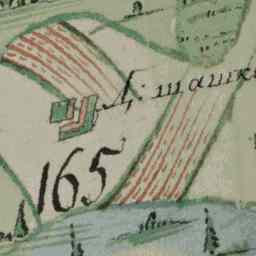 Д: шашк
165